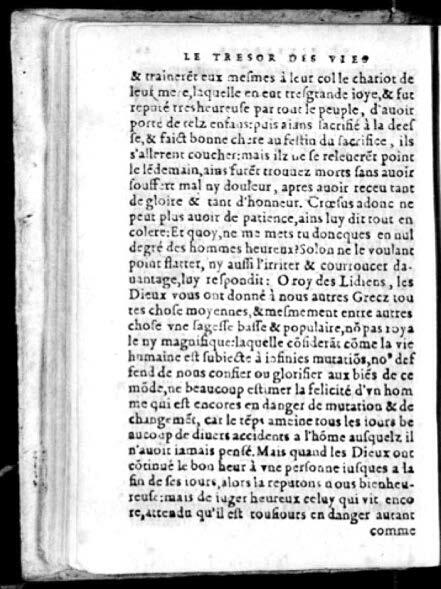 LE TRESOR DES VIES
& trainerẽt eux mesmes à leur col le chariot de
leur mere, laquelle en eut tresgrande ioye, & fut
reputé tresheureuse par tout le peuple, d'auoir
porté de telz enfans: puis aians sacrifié à la dees
se, & faict bonne chere au festin du sacrifice, ils
s'allerent coucher: mais ilz ne se releuerẽt point
le lẽdemain, ains furẽt trouuez morts sans auoir
souffert mal ny douleur, apres auoir receu tant
de gloire & tant d'honneur. Crœsus adonc ne
peut plus auoir de patience, ains luy dit tout en
colere: Et quoy, ne me mets tu doncques en nul
degré des hommes heureux? Solon ne le voulant
point flatter, ny aussi l'irriter & courroucer da-
uantage, luy respondit: O roy des Lidiens, les
Dieux vous ont donné à nous autres Grecz tou
tes chose moyennes, & mesmement entre autres
chose vne sagesse basse & populaire, nõ pas roya
le ny magnifique: laquelle cõsiderãt cõme la vie
humaine est subiecte à infinies mutatiõs, noꝰ def
fend de nous confier ou glorifier aux biẽs de ce
mõde, ne beaucoup estimer la felicité d'vn hom
me qui est encores en danger de mutation & de
changemẽt, car le tẽps ameine tous les iours be
aucoup de diuers accidents a l'hõme ausquelz il
n'auoit iamais pensé. Mais quand les Dieux ont
cõtinué le bon heur à vne personne iusques a la
fin de ses iours, alors la reputons nous bienheu-
reuse: mais de iuger heureux celuy qui vit enco
re, attendu qu'il est tousiours en danger autant
comme